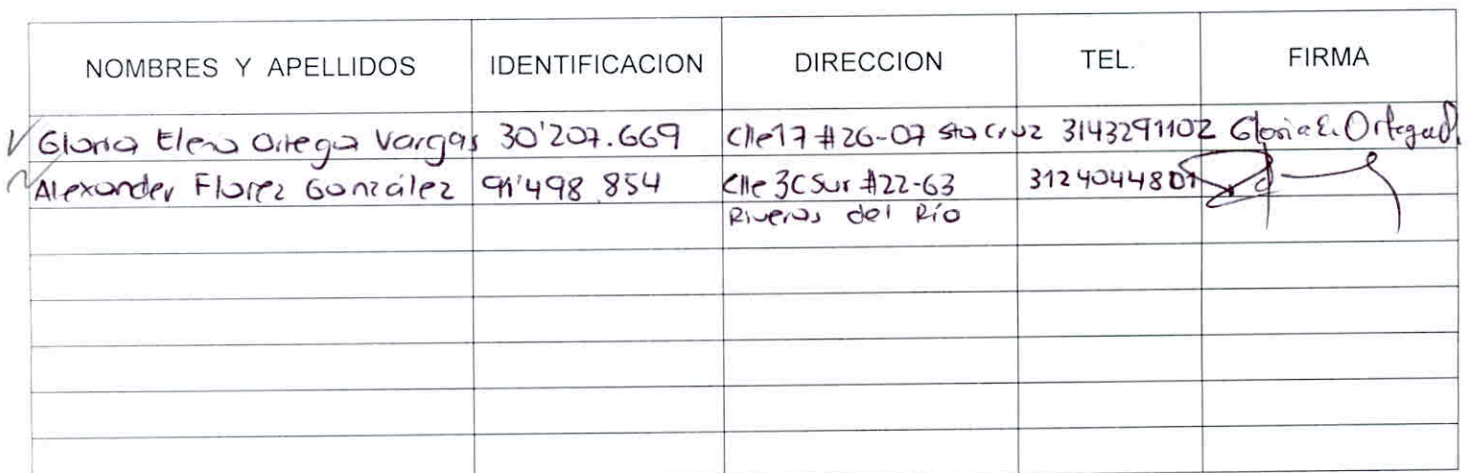 NOMBRES Y APELLIDOS IDENTIFICACION DIRECCION TEL. FIRMA
Gloria Elena Ortega Vargas 30'207.669 Clle 17 #26-07 Sta Cruz 3143291102 Gloria E. Ortega
Alexander Florez González 91'498.854 Clle 3C Sur #22-63 3124044801
Riveras del Río